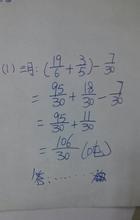 (1) (19/6 + 3/5) - 7/30
= 95/30 + 18/30 - 7/30
= 95/30 + 11/30
= 106/30 (吨)
答: ……